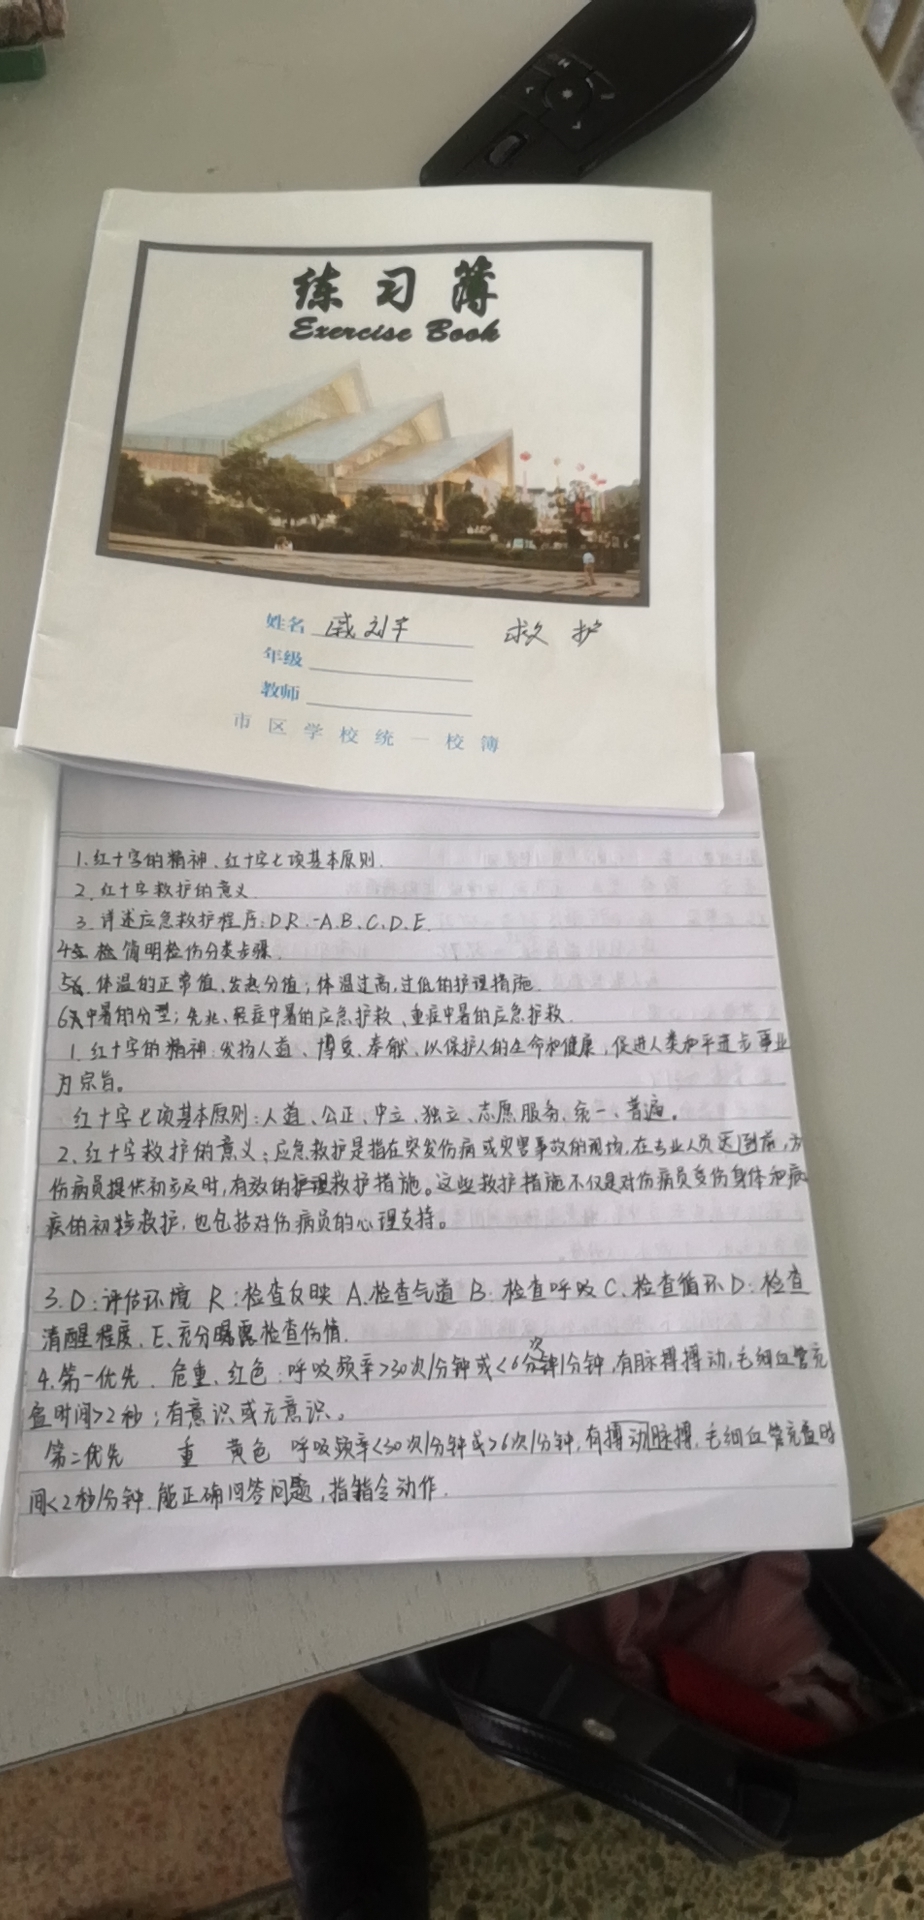 练习薄
Exercise Book
姓名 戚刘宇 救护
年级
教师
市区学校统一校簿
1.红十字的精神、红十字七项基本原则.
2.红十字救护的意义.
3.详述应急救护程序:DR.-A.B.C.D.E.
4 检 简明检伤分类步骤.
5 体温的正常值、发热分值;体温过高,过低的护理措施.
6 中暑的分型;先兆、轻症中暑的应急护救、重症中暑的应急护救.
1.红十字的精神:发扬人道、博爱、奉献,以保护人的生命和健康,促进人类和平进步事业
为宗旨。
红十字七项基本原则:人道、公正、中立、独立、志愿服务、统一、普遍。
2、红十字救护的意义:应急救护是指在突发伤病或灾害事故的现场,在专业人员送到前,为
伤病员提供初步及时,有效的护理救护措施。这些救护措施不仅是对伤病员受伤身体和病
疾的初步救护,也包括对伤病员的心理支持。
3.D:评估环境 R:检查反映 A.检查气道 B:检查呼吸 C.检查循环 D:检查
清醒程度、E.充分曝露检查伤情.
4.第一优先. 危重、红色:呼吸频率>30次/分钟或<6次/分钟,有脉搏搏动,毛细血管充
盈时间>2秒;有意识或无意识。
第二优先 重 黄色 呼吸频率<30次/分钟或>6次/分钟,有搏动脉搏,毛细血管充盈时
间<2秒/分钟.能正确回答问题,指令动作.